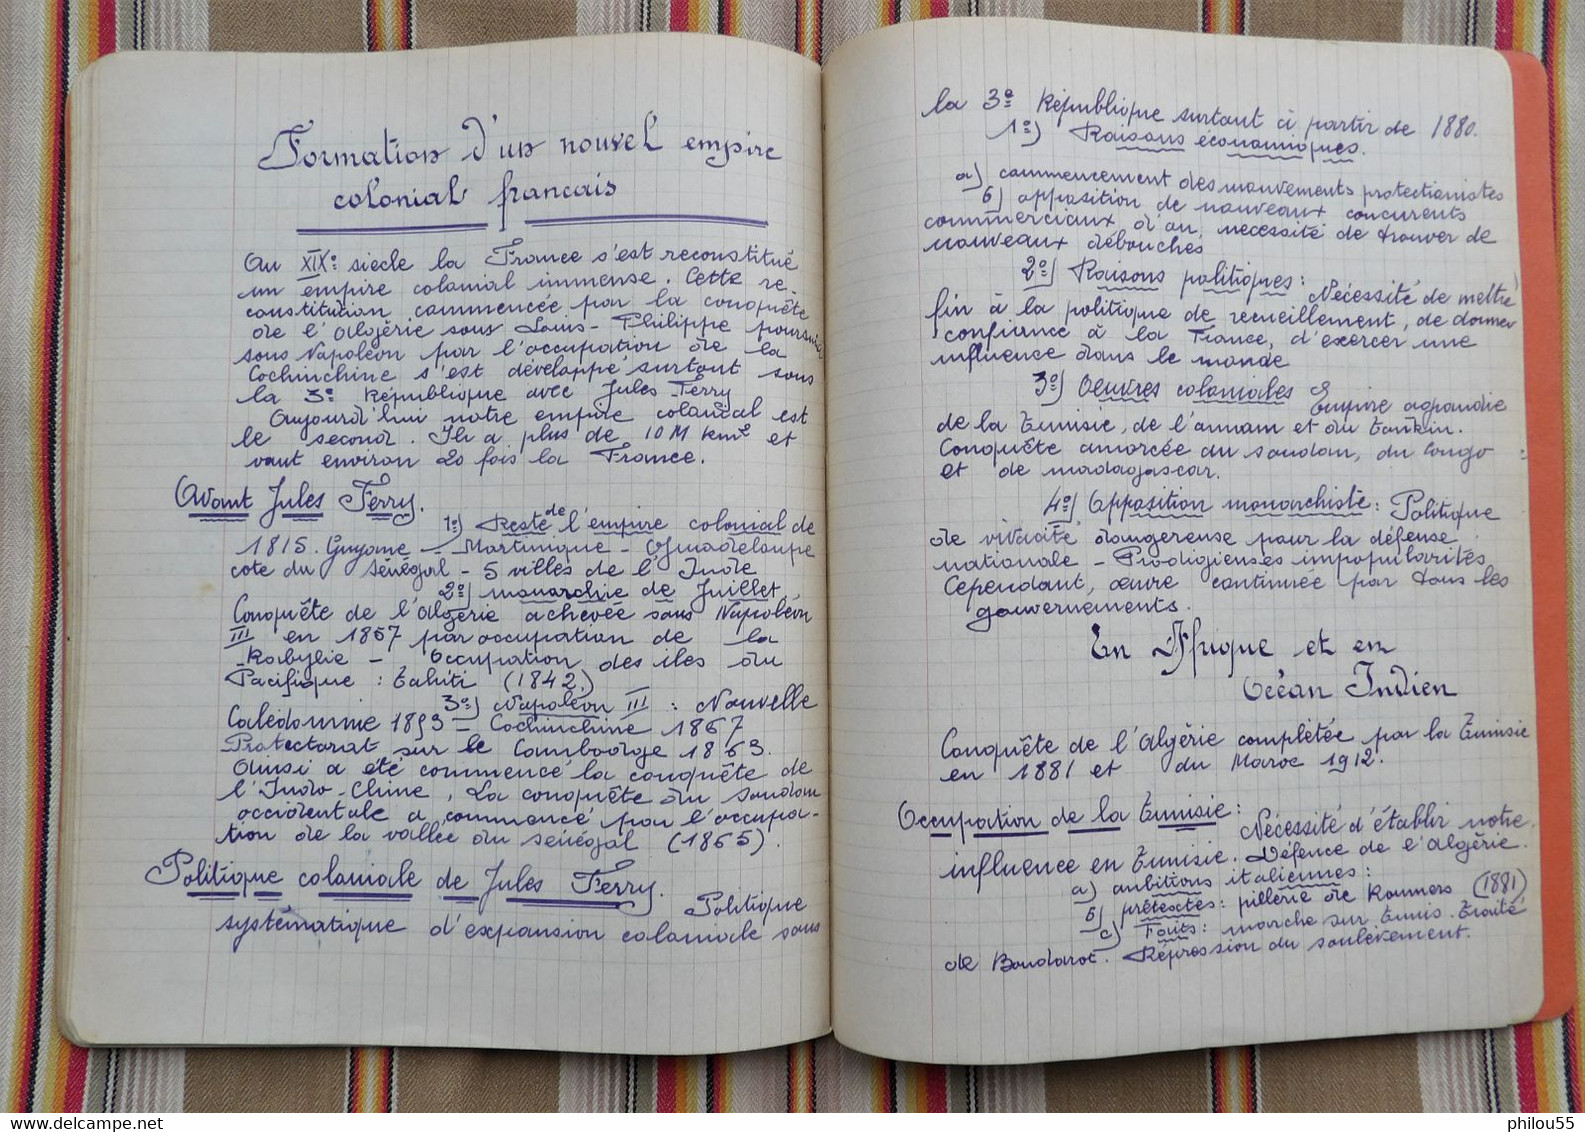 Formation d'un nouvel empire
colonial francais
Au XIXe siecle la France s'est reconstitué
un empire colonial immense. Cette re-
constitution commencée par la conquête
de l'Algérie sous Louis-Philippe poursuivie
sous Napoléon par l'occupation de la
Cochinchine s'est développé surtout sous
la 3e République avec Jules Ferry
Aujourd'hui notre empire colonial est
le second. Il a plus de 10 M km2 et
vaut environ 20 fois la France.
Avant Jules Ferry.
1o) Reste de l'empire colonial de
1815. Guyane - Martinique - Guadeloupe
cote du Sénégal - 5 villes de l'Inde
2o) monarchie de Juillet.
Conquête de l'Algérie achevée sous Napoléon
III en 1857 par occupation de la
Kabylie - Occupation des iles du
Pacifique : Tahiti (1842.)
3o) Napoléon III : Nouvelle
Calédonnie 1853 - Cochinchine 1867
Protectorat sur le Cambodge 1863.
Ainsi a été commencé la conquête de
l'Indo-Chine, La conquête du soudan
occidentale a commencé par l'occupa-
tion de la vallée du Sénégal (1865).
Politique coloniale de Jules Ferry. Politique
systématique d'expansion coloniale sous
la 3e République surtout à partir de 1880.
1o) Raisons économiques.
a) commencement des mouvements protectionistes
b) apposition de nouveaux concurents
commerciaux d'ou necessité de trouver de
nouveaux débouchés
2o) Raisons politiques : Nécessité de mettre
fin à la politique de recueillement, de donner
confiance à la France, d'exercer une
influence dans le monde
3o) Oeuvres coloniales Empire agrandie
de la Tunisie, de l'annam et du Tonkin.
Conquête amorcée du soudan, du Congo
et de madagascar.
4o) Opposition monarchiste : Politique
de vivacité dangereuse pour la défense
nationale - Prodigieuses impopularités
Cependant, œuvre continuée par tous les
gouvernements.
En Afrique et en
Océan Indien
Conquête de l'Algérie complétée par la Tunisie
en 1881 et du Maroc 1912.
Occupation de la Tunisie : Nécessité d'établir notre
influence en Tunisie. Défence de l'Algérie.
a) ambitions italiennes :
b) prétextes : pillerie de Roumers (1881)
c) Faits : marche sur Tunis. Traité
de Boudarot. Répression du soulèvement.
www.delcampe.net
philou55